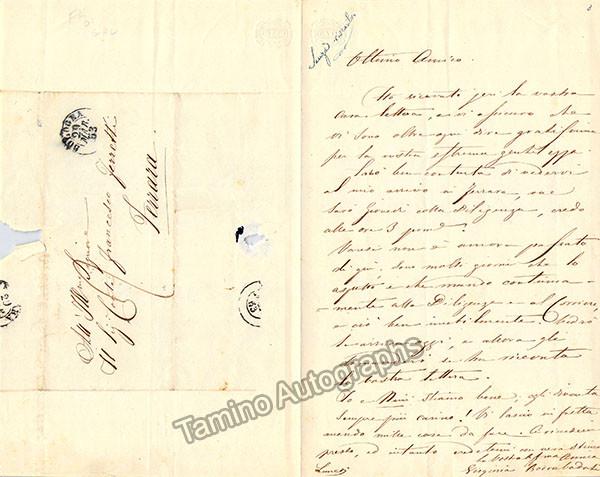 BOLOGNA
29
MAR.
53
All' Ill.mo Signore
Il Sig. Conte Francesco
Ferrara
Ottimo Amico.
Ho ricevuto jeri la vostra
cara lettera, e vi assicuro che
vi sono oltre ogni dire
per la vostra estrema gentilezza.
Sarò ben contenta di vedervi
al mio arrivo in Ferrara, ove
sarò Giovedì colla Diligenza, credo
alle ore 3 pomd.
Varesi non è ancora passato
di qui. Sono molti giorni che lo
aspetto e che mando continua-
mente alla Diligenza e al Corriere,
e ciò ben inutilmente.
oggi, e allora gli
se ha ricevuta
la vostra lettera.
Io e Ninì stiamo bene; egli diventa
sempre più carino! Vi lascio in fretta
avendo mille cose da fare. A rivederci
presto, ed intanto credetemi con vera stima
la vostra aff.ma Amica
Lunedì
Virginia Boccabadati
Tamino Autographs